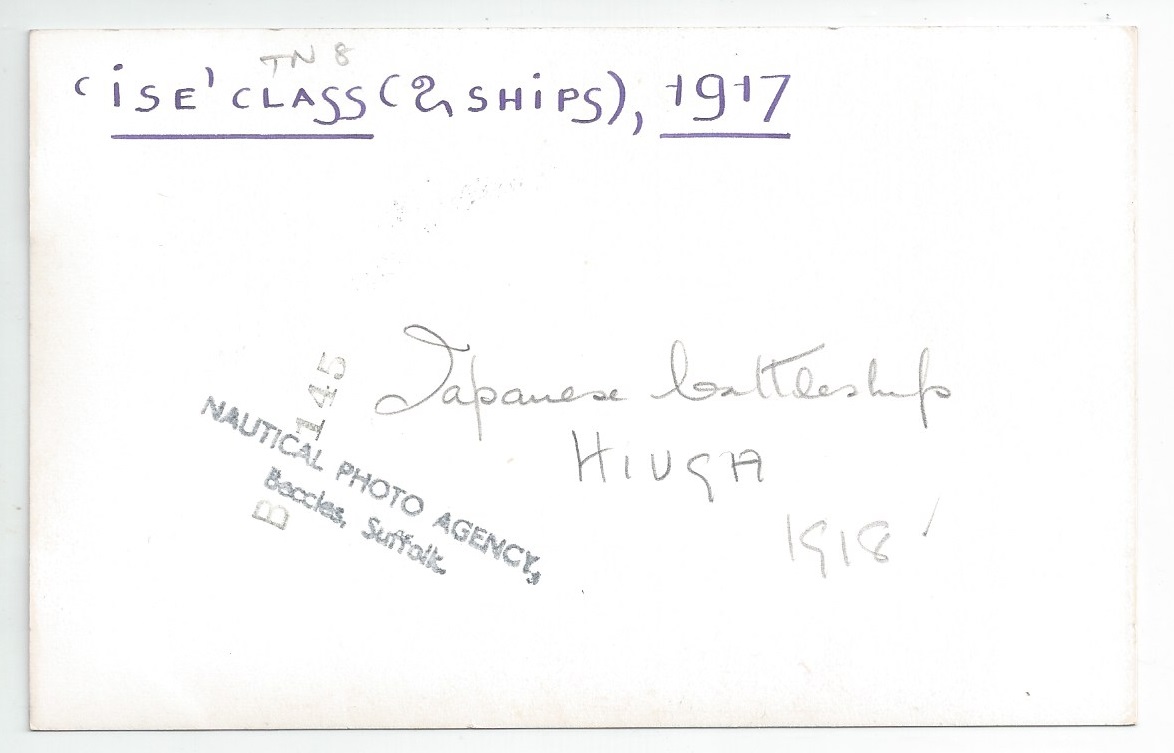 TN 8
'iSE' CLASS (2 SHiPS), 1917
Japanese battleship
HIUGA
1918
B 145
NAUTICAL PHOTO AGENCY,
Beccles, Suffolk.